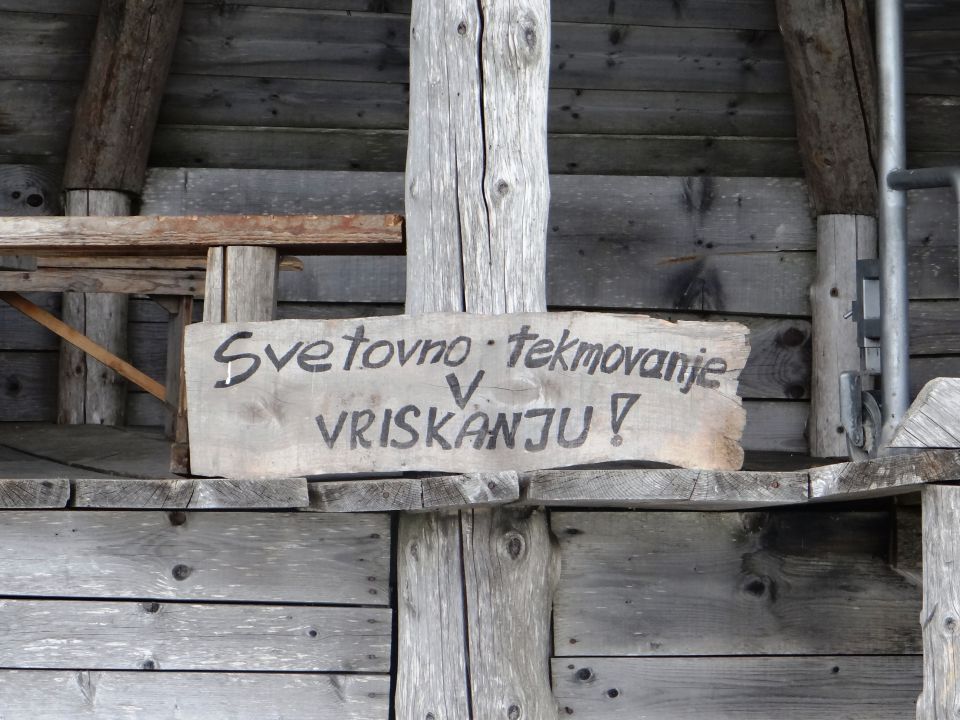 Svetovno tekmovanje
V
VRISKANJU!